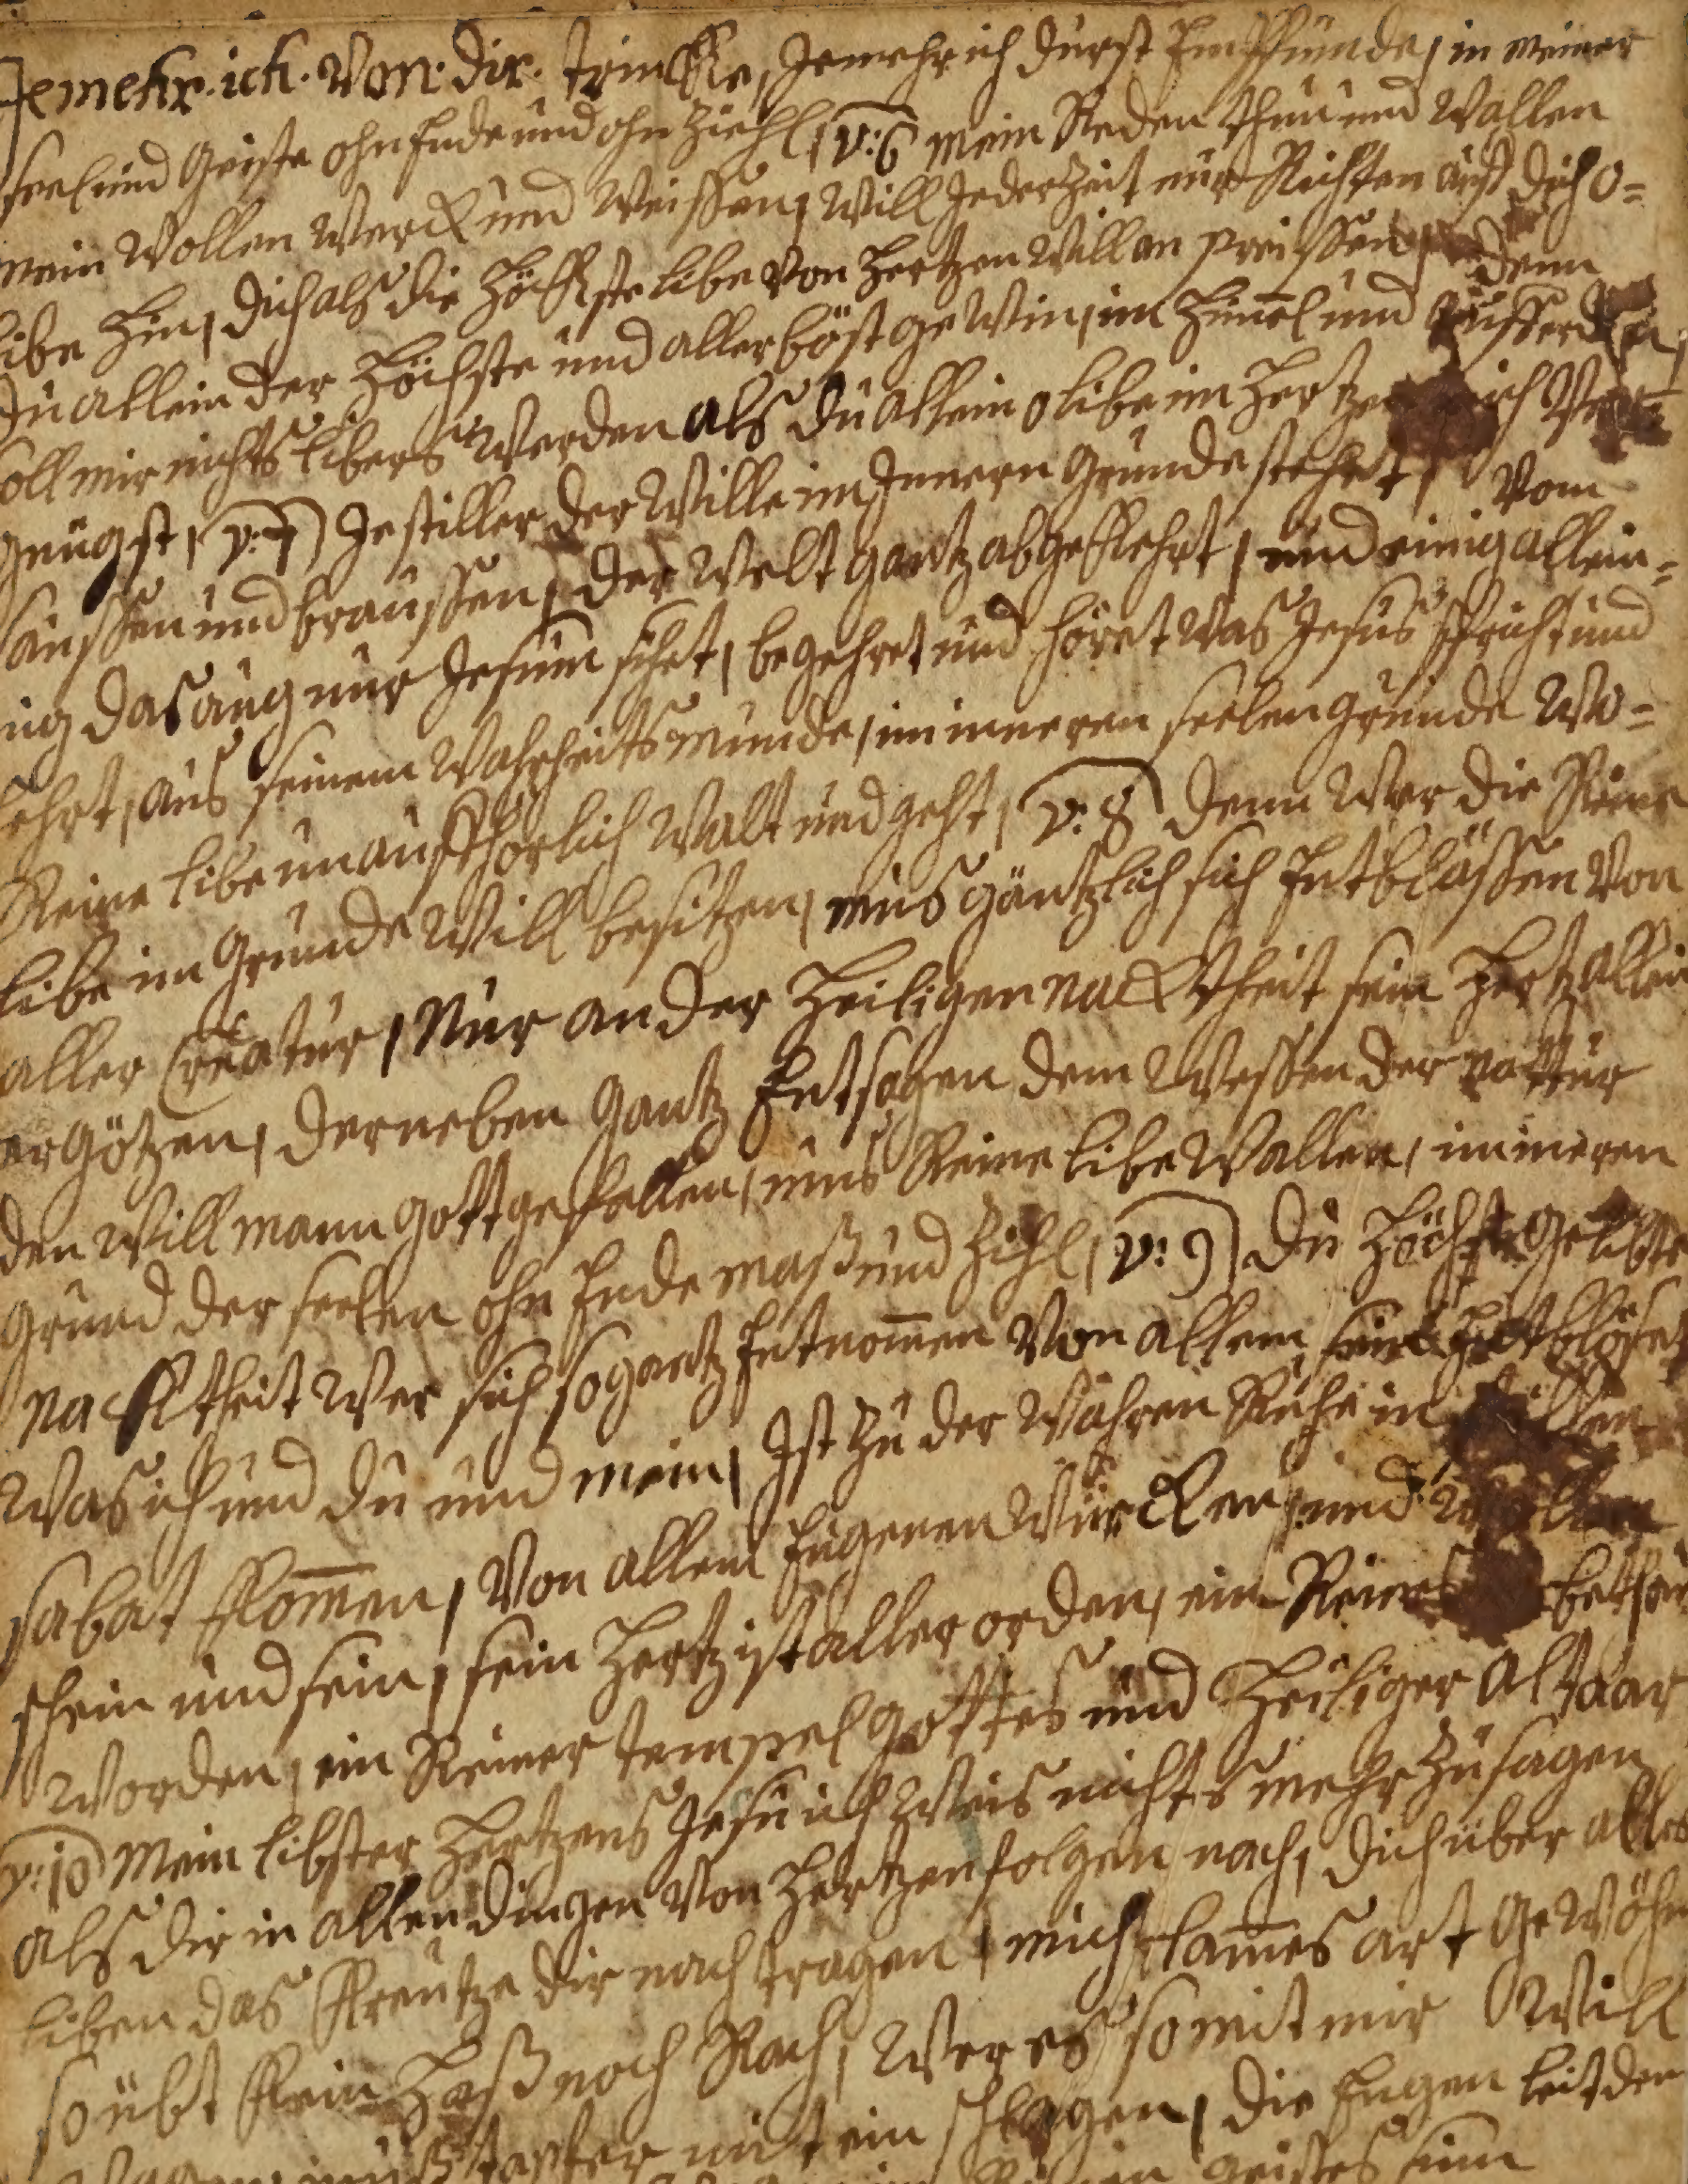 Jemehr. ich. Von. dir. trinke, Jemehr ich durst Empfünde, in meiner
seel und Geiste ohn Ende und ohn Ziehl, v: 6 mein Reden thun und Wallen
mein Wollen Werck und Weissen, Will Jederzeit nur Richten auff dich o=
libe hin, dich als die höchste libe Von hertzen Will an preissen, denn
du allein der höchste und allerböst geWin, im himel und auff erden,
soll mir nichts libers Werden als du allein o libe im hertzen mich Ver
gnügst, v: 7 Je stiller der Wille im Innern Grunde stehet, Vom
saussen und braussen, der Welt gantz abgekehrt, und einig allein=
ig das aug nur Jesum sihet, begehret und höret Was Jesus spricht und
lehrt, aus seinem Wahrheits munde, im inneren seelen grunde Wo=
Reine libe unauffhörlich Walt und geht, v. 8 denn Wer die Reine
libe im Grunde Will besitzen, mus gäntzlich sich Entblössen Von
aller Creatur, Nur an der heiligen nacktheit sein hertz allein
ergötzen, darneben Gantz Entsagen dem Wessen der nattur
den Will mann Gott gefallen, mus Reine libe Wallen, im ineren
grund der seelen ohn Ende maß und Zihl, v: 9 du höchst gelibte
nacktheit Wer sich so gantz Entnomen Von allem sein Entblöset
Was ich und du und mein, Ist zu der Wahren Ruhe in stillen
sabat komen, Von allem Eugenen Würcken, und Wollen
schein und sein, sein hertz ist aller orden, ein Reines bethau
Worden, ein Reiner tempel Gottes und heiliger Altaar
v: 10 mein libster hertzens Jesu ich Weis nichts mehr zu sagen
als dir in allen dingen Von hertzen folgen nach, dich über alles
liben das Kreutze dir nach tragen, mich lames art geWöhn
so übt kein haß noch Rach, Wer es so mit mir Will
Wagen, mus tapfer mit ein schlagen, die Eugen leit den
geistes sinn